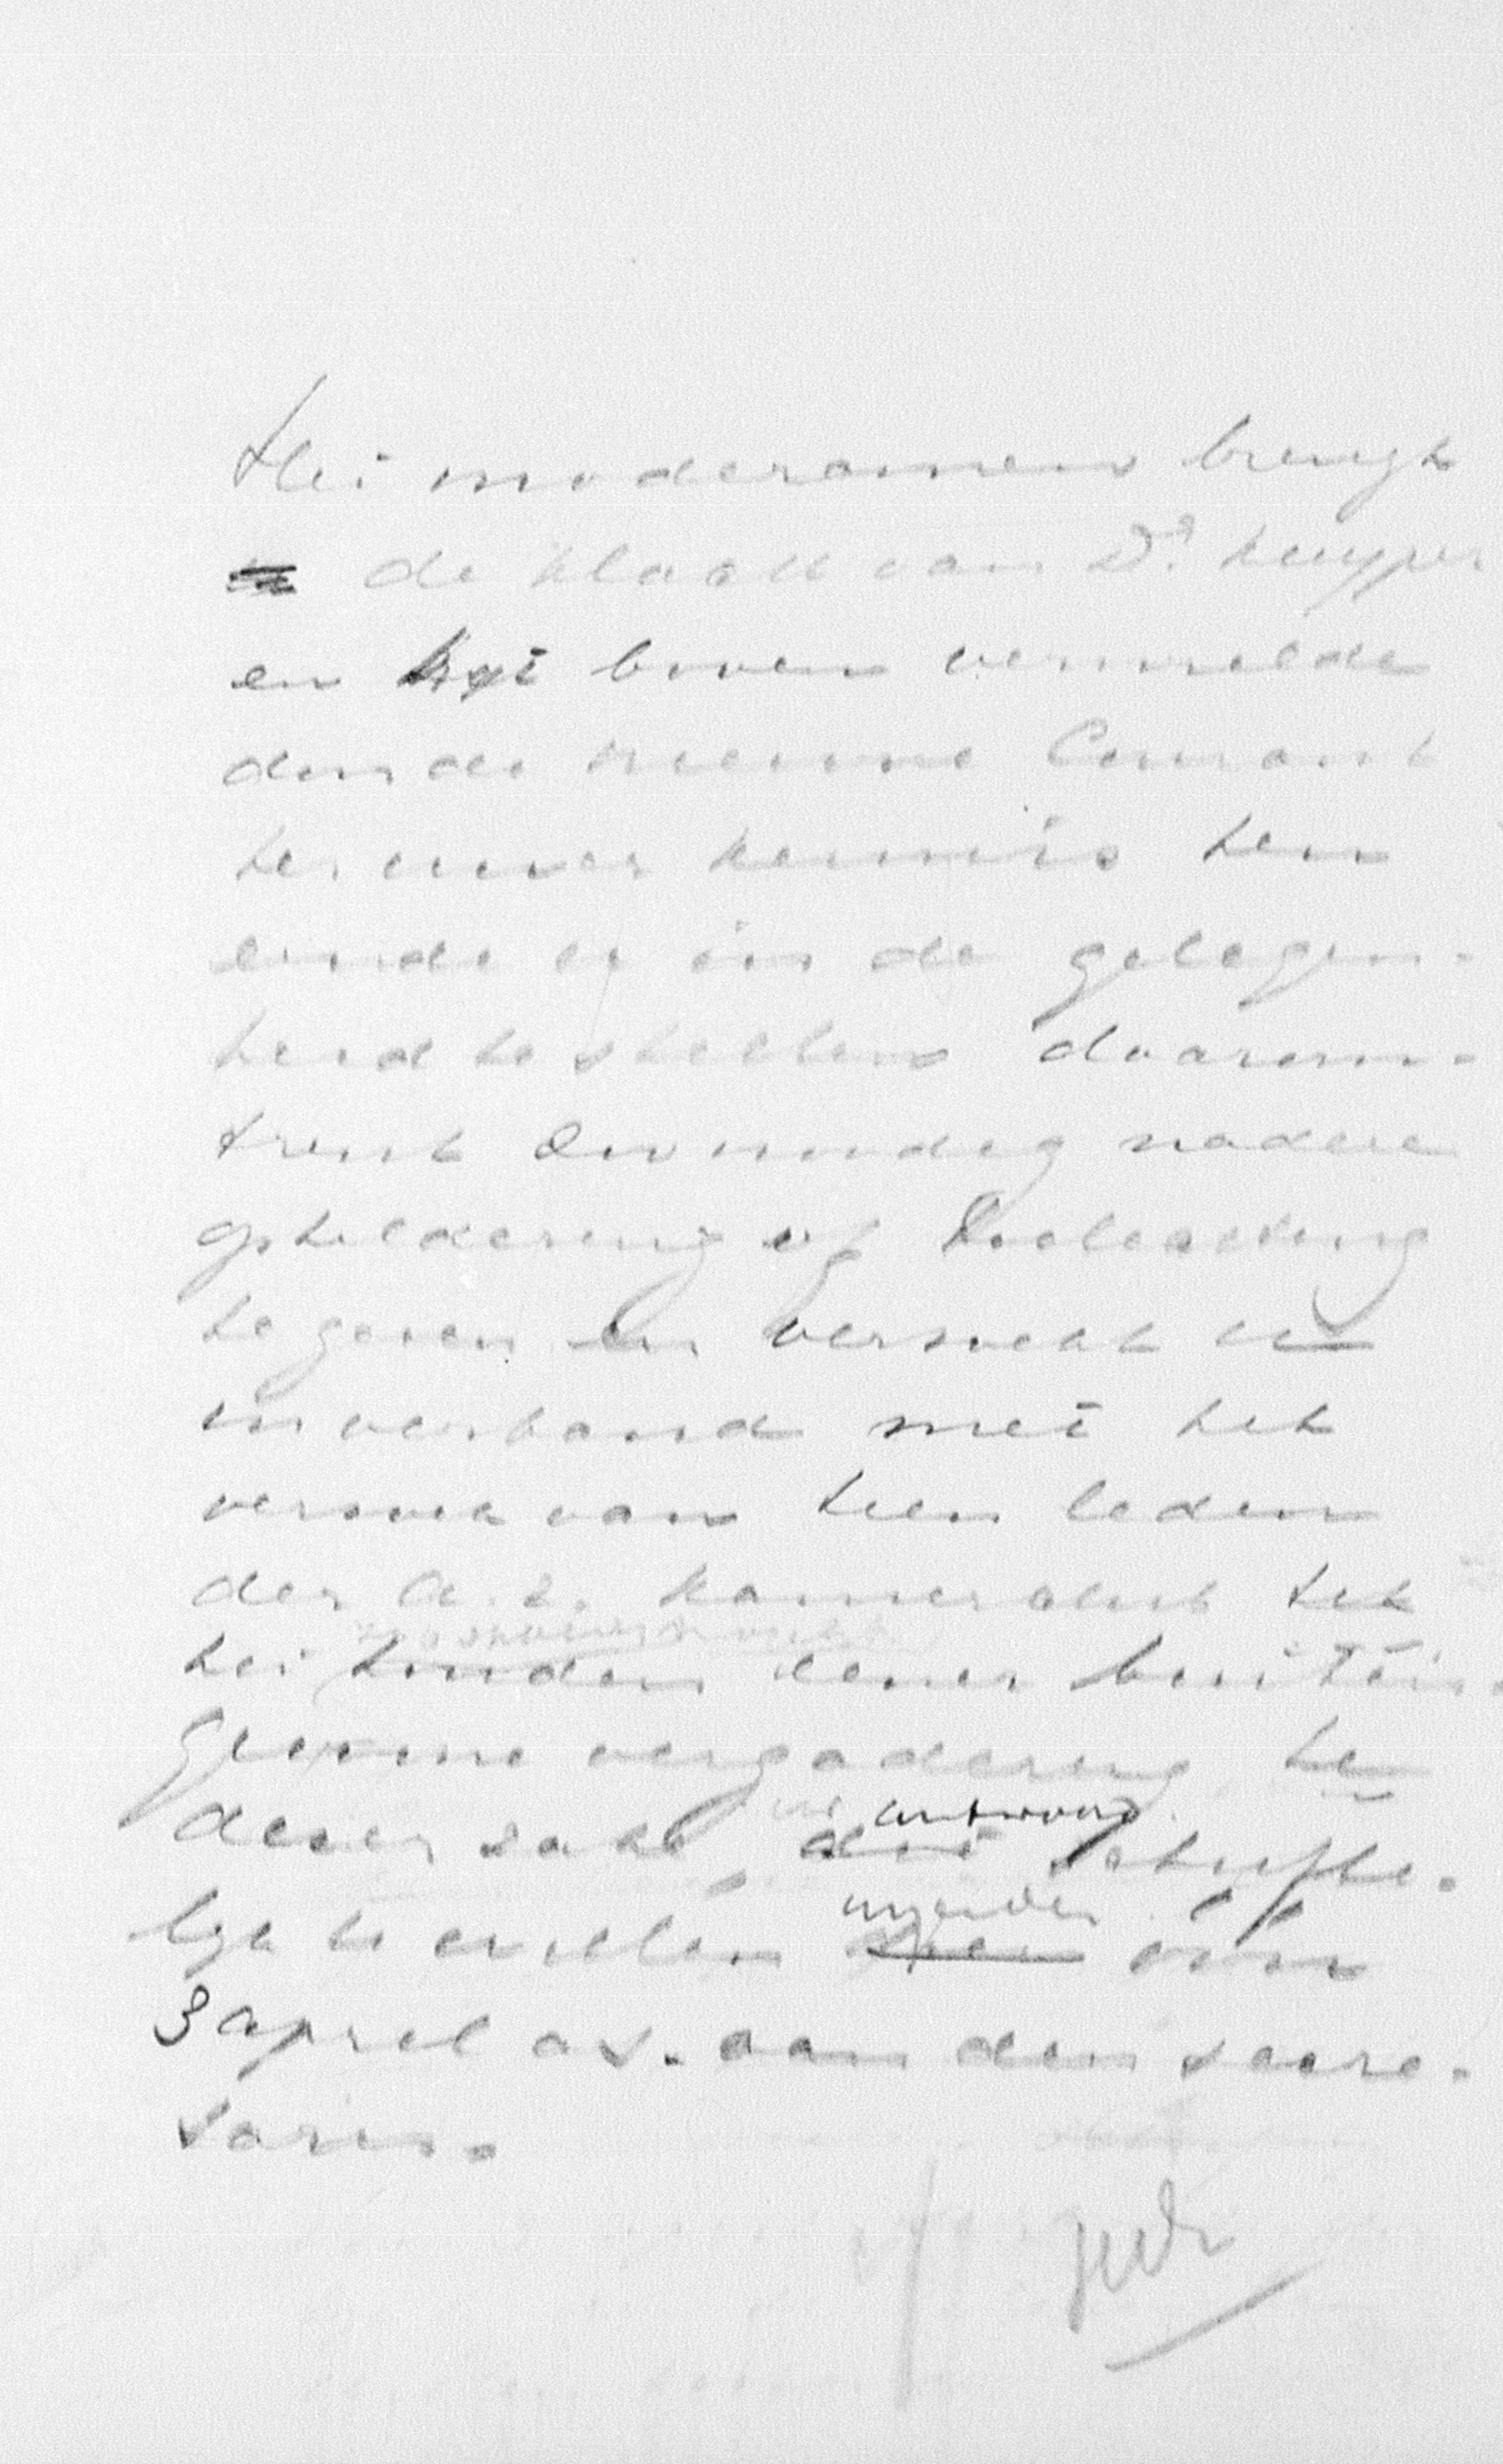 Het moderamen brengt
de klacht van Dr Kuyper
en het boven vermelde
der de Nieuwe Courant
ter uwer kennis ten
einde u in de gelegen-
heid te stellen daarom-
trent eenige nadere
opheldering of toelichting
te geven en verzoekt u
in verband met het
verzoek van tien leden
der A.R. Kamerclub tot
het houden eener buiten-
gewone vergadering te
dezer zake, antwoord schrifte-
lijk te willen inzenden vóór
3 april a.s. aan den secre-
taris.